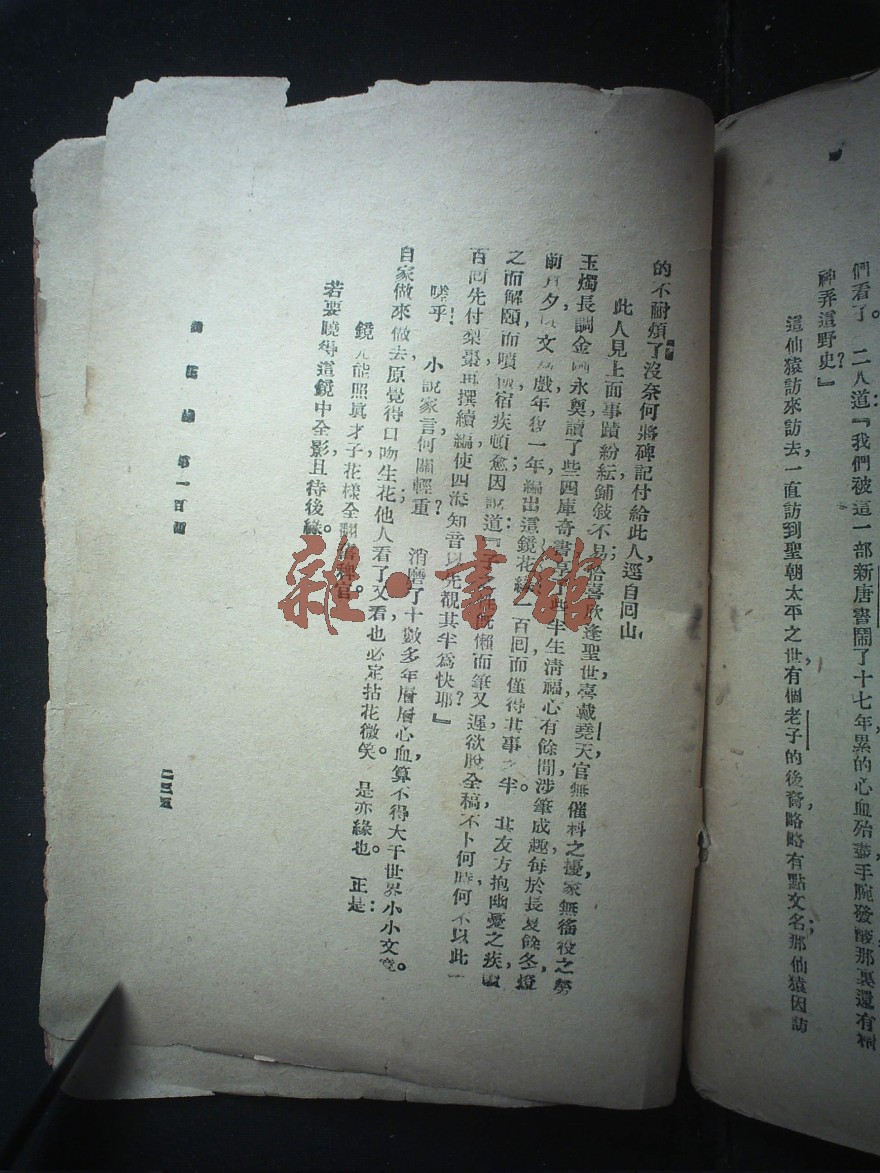 們看了。二人道：『我們被這一部新唐書鬧了十七年，累的心血殆盡，手腕發酸，那裏還有
神弄這野史？』
這仙猿訪來訪去，一直訪到聖朝太平之世，有個老子的後裔，略略有點文名；那仙猿因訪
的不耐煩了，沒奈何，將碑記付給此人，逕自回山。
此人見上面事蹟紛紜，鋪敍不易；恰喜欣逢聖世，喜戴堯天，官無催科之擾，家無徭役之勞，
玉燭長調，金甌永奠；讀了些四庫奇書，享了些半生淸福。心有餘閒，涉筆成趣，每於長夏餘冬，燈
前月夕，以文爲戲，年復一年，編出這鏡花緣一百回，而僅得其事之半。其友方抱幽憂之疾，
之而解頤，而噴飯，宿疾頓愈。因說道：『子之性旣懶而筆又遲，欲脫全稿，不卜何時，何不以此一
百回先付梨棗，再撰續編，使四海知音以先覩其半爲快耶？』
嗟乎！小說家言，何關輕重？消磨了十數多年層層心血，算不得大千世界小小文章。
自家做來做去，原覺得口吻生花；他人看了又看，也必定拈花微笑。是亦緣也。正是：
鏡光能照眞才子，花樣全翻舊稗官。
若要曉得這鏡中全影，且待後緣。
鏡花緣　第一百回
二三五
雜·書館